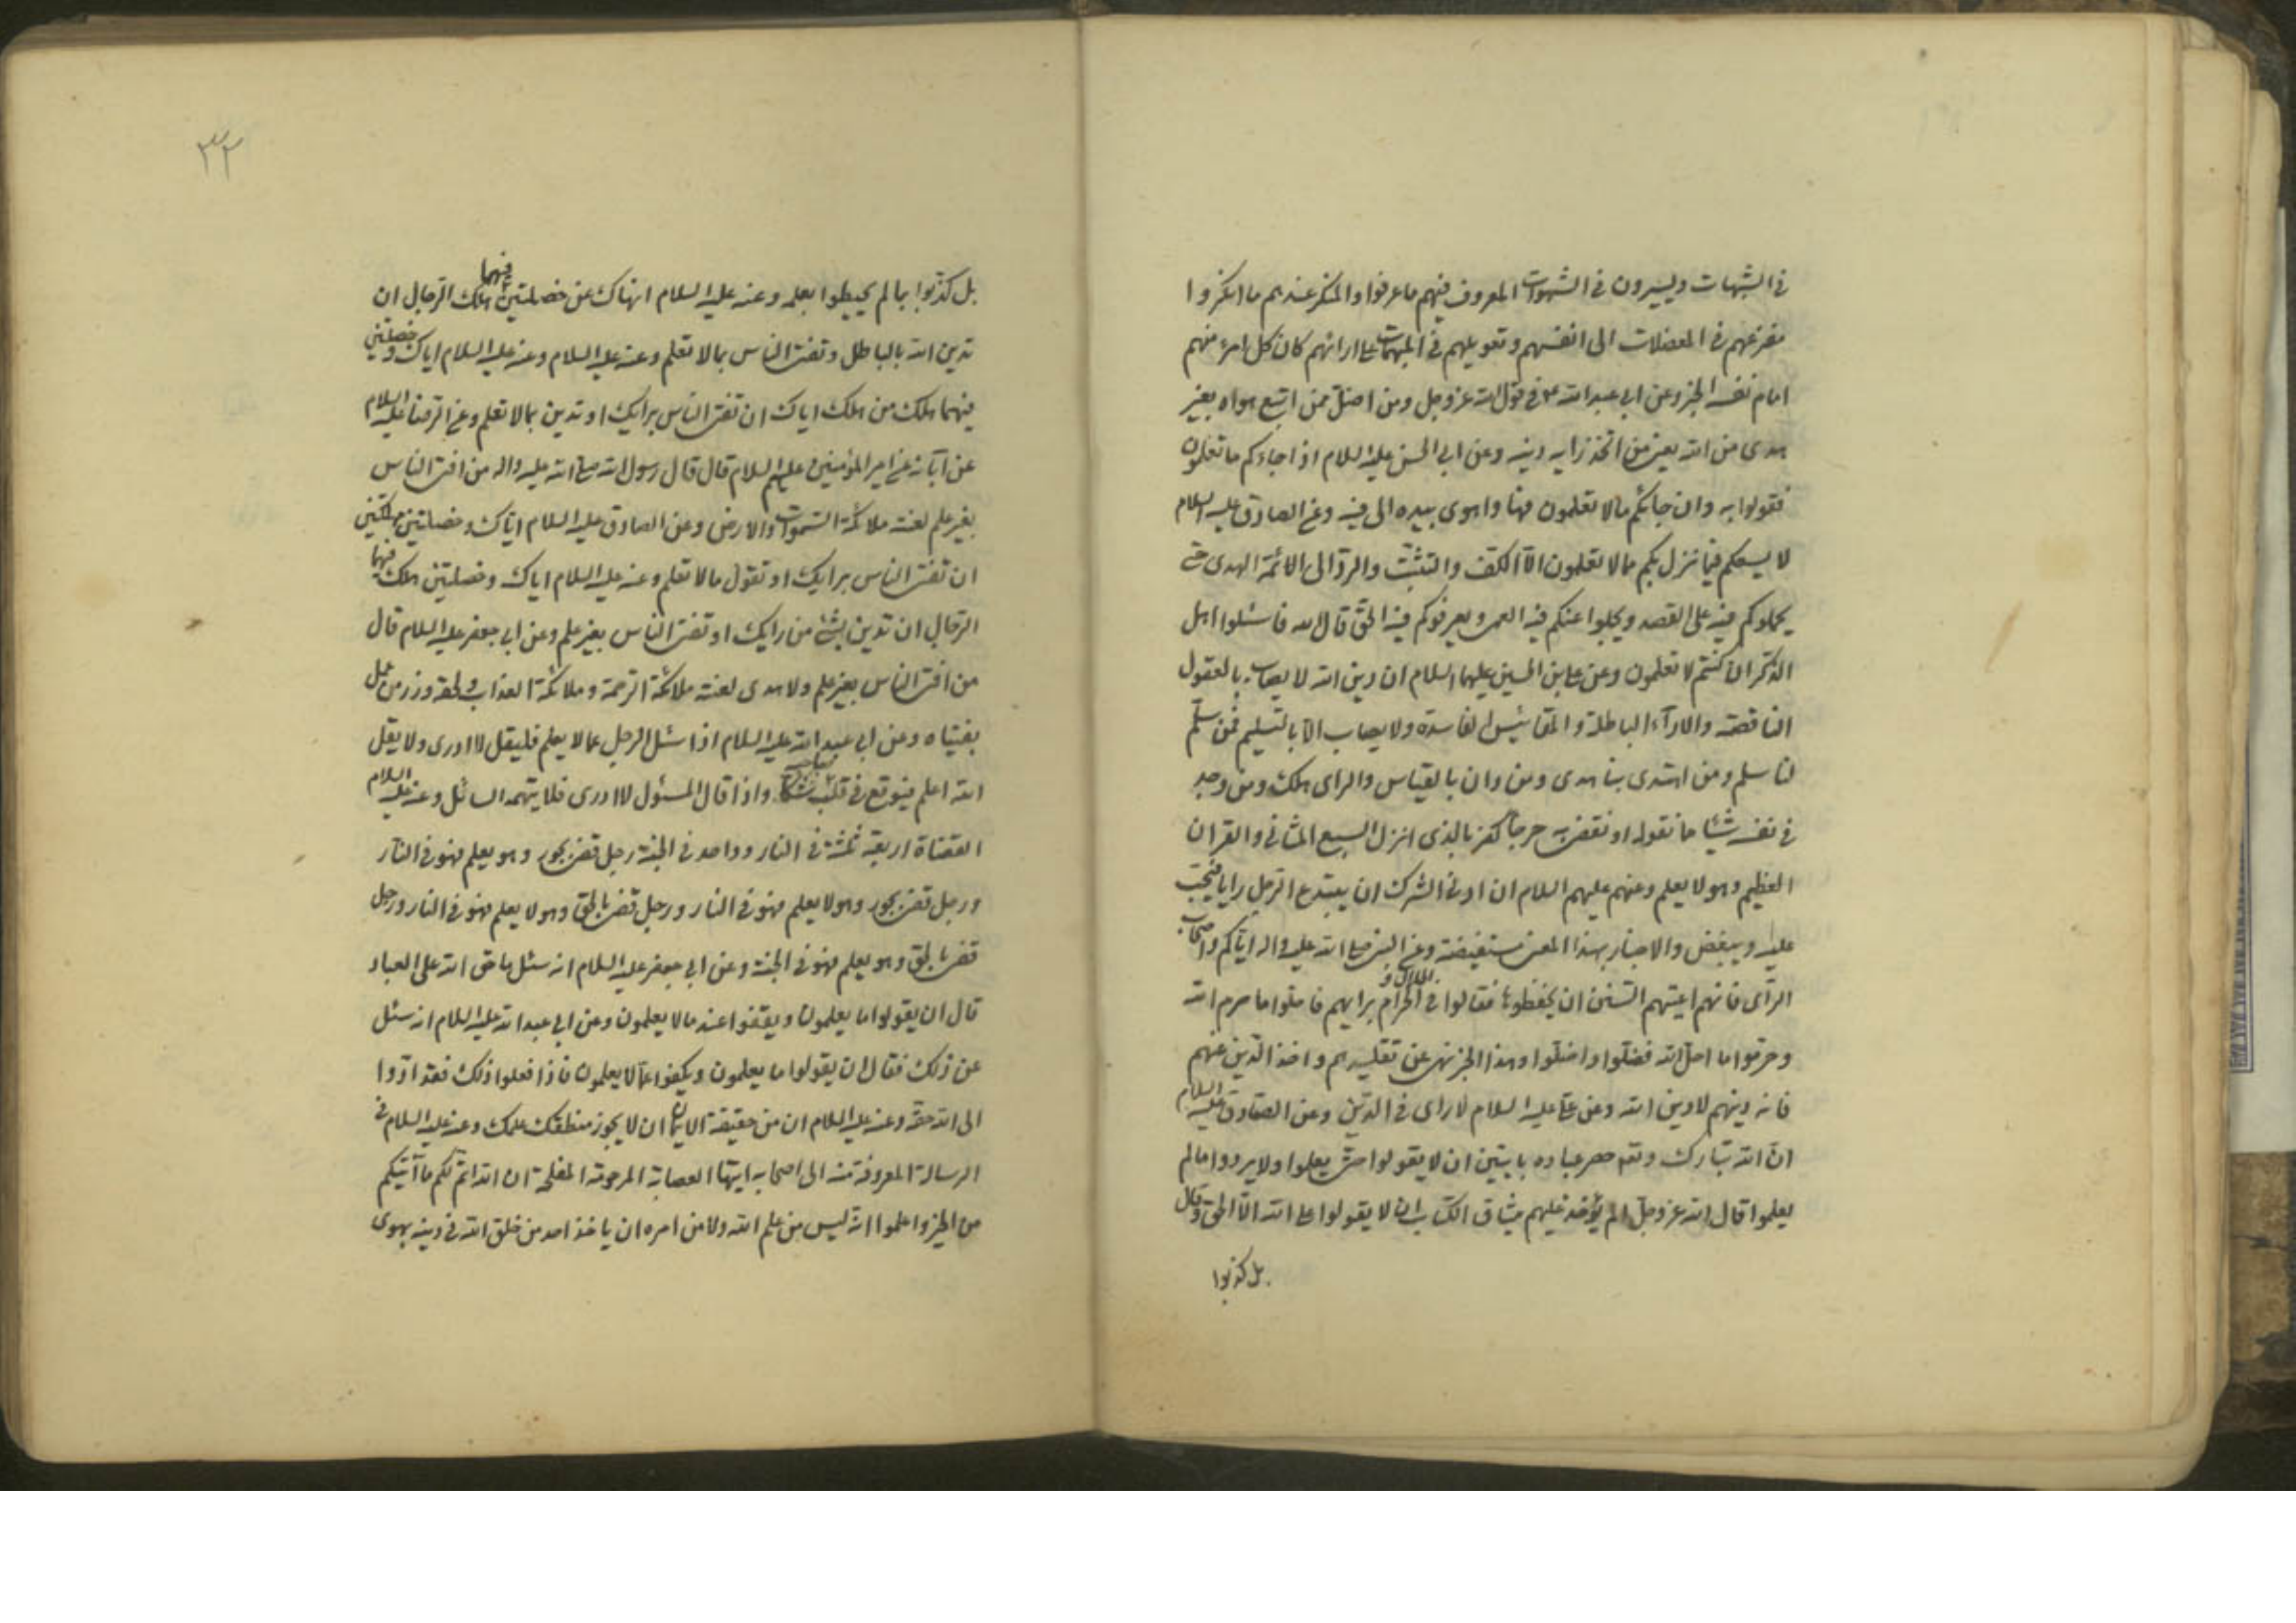 في الشبهات ويسيرون في الشهوات المعروف فيهم ما عرفوا والمنكر عندهم ما انكروا
مفزعهم في المعضلات الى انفسهم وتعويلهم في المبهمات على ارائهم كان كل امرء منهم
امام نفسه الخبر وعن ابي عبد الله ع في قول الله عز وجل ومن اضل ممن اتبع هواه بغير
هدى من الله يعني من اتخذ رايه دينه وعن ابي الحسن عليه السلام اذا جاءكم ما تعلمون
فقولوا به وان جائكم ما لا تعلمون فها واهوى بيده الى فيه وعن الصادق عليه السلام
لا يسعكم فيما نزل بكم مما لا تعلمون الا الكف والتثبت والرد الى الائمة الهدى حتى
يحملوكم فيه على القصد ويجلوا عنكم فيه العمى ويعرفوكم فيه الحق قال الله فاسئلوا اهل
الذكر ان كنتم لا تعلمون وعن علي بن الحسين عليهما السلام ان دين الله لا يصاب بالعقول
الناقصة والاراء الباطلة والمقائيس الفاسدة ولا يصاب الا بالتسليم فمن سلم
لنا سلم ومن اهتدى بنا هدى ومن دان بالقياس والراى هلك ومن وجد
في نفسه شيئا مما نقوله او نقضى به حرجا كفر بالذى انزل السبع المثاني والقران
العظيم وهو لا يعلم وعنهم عليهم السلام ان ادنى الشرك ان يبتدع الرجل رايا فيحب
عليه ويبغض والاخبار بهذا المعنى مستفيضة وعن النبي صلى الله عليه واله اياكم واصحاب
الراى فانهم اعيتهم السنن ان يحفظوها فقالوا في الحلال و الحرام برايهم فاحلوا ما حرم الله
وحرموا ما احل الله فضلوا واضلوا وهذا الخبر نهى عن تقليدهم واخذ الدين عنهم
فانه دينهم لا دين الله وعن علي عليه السلام لا راى في الدين وعن الصادق عليه السلام
ان الله تبارك وتعالى حصر عباده بايتين ان لا يقولوا حتى يعلموا ولا يردوا ما لم
يعلموا قال الله عز وجل الم يؤخذ عليهم ميثاق الكتاب ان لا يقولوا على الله الا الحق وقال
بل كذبوا
٣٢
بل كذبوا بما لم يحيطوا بعلمه وعنه عليه السلام انهاك عن خصلتين فيهما هلك الرجال ان
تدين الله بالباطل وتفتى الناس بما لا تعلم وعنه عليه السلام وعنه عليه السلام اياك وخصلتين
فيهما هلك من هلك اياك ان تفتى الناس برايك او تدين بما لا تعلم وعن الرضا عليه السلام
عن آبائه عن امير المؤمنين عليهم السلام قال قال رسول الله صلى الله عليه واله من افتى الناس
بغير علم لعنته ملائكة السموات والارض وعن الصادق عليه السلام اياك وخصلتين مهلكتين
ان تفتى الناس برايك او تقول ما لا تعلم وعنه عليه السلام اياك وخصلتين هلك فيهما
الرجال ان تدين بشئ من رايك او تفتى الناس بغير علم وعن ابي جعفر عليه السلام قال
من افتى الناس بغير علم ولا هدى لعنته ملائكة الرحمة وملائكة العذاب ولحقه وزر من عمل
بفتياه وعن ابي عبد الله عليه السلام اذا سئل الرجل عما لا يعلم فليقل لا ادرى ولا يقل
الله اعلم فيوقع في قلب صاحبه شكا واذا قال المسئول لا ادرى فلا يتهمه السائل وعنه عليه السلام
القضاة اربعة ثلثة في النار وواحد في الجنة رجل قضى بجور وهو يعلم فهو في النار
ورجل قضى بجور وهو لا يعلم فهو في النار ورجل قضى بالحق وهو لا يعلم فهو في النار ورجل
قضى بالحق وهو يعلم فهو في الجنة وعن ابي جعفر عليه السلام انه سئل ما حق الله على العباد
قال ان يقولوا ما يعلمون ويقفوا عند ما لا يعلمون وعن ابي عبد الله عليه السلام انه سئل
عن ذلك فقال ان يقولوا ما يعلمون ويكفوا عما لا يعلمون فاذا فعلوا ذلك فقد ادوا
الى الله حقه وعنه عليه السلام ان من حقيقة الايمان ان لا يجوز منطقك علمك وعنه عليه السلام في
الرسالة المعروفة منه الى اصحابه ايتها العصابة المرحومة المفلحة ان الله اتم لكم ما آتيكم
من الخير واعلموا انه ليس من علم الله ولا من امره ان ياخذ احد من خلق الله في دينه بهوى